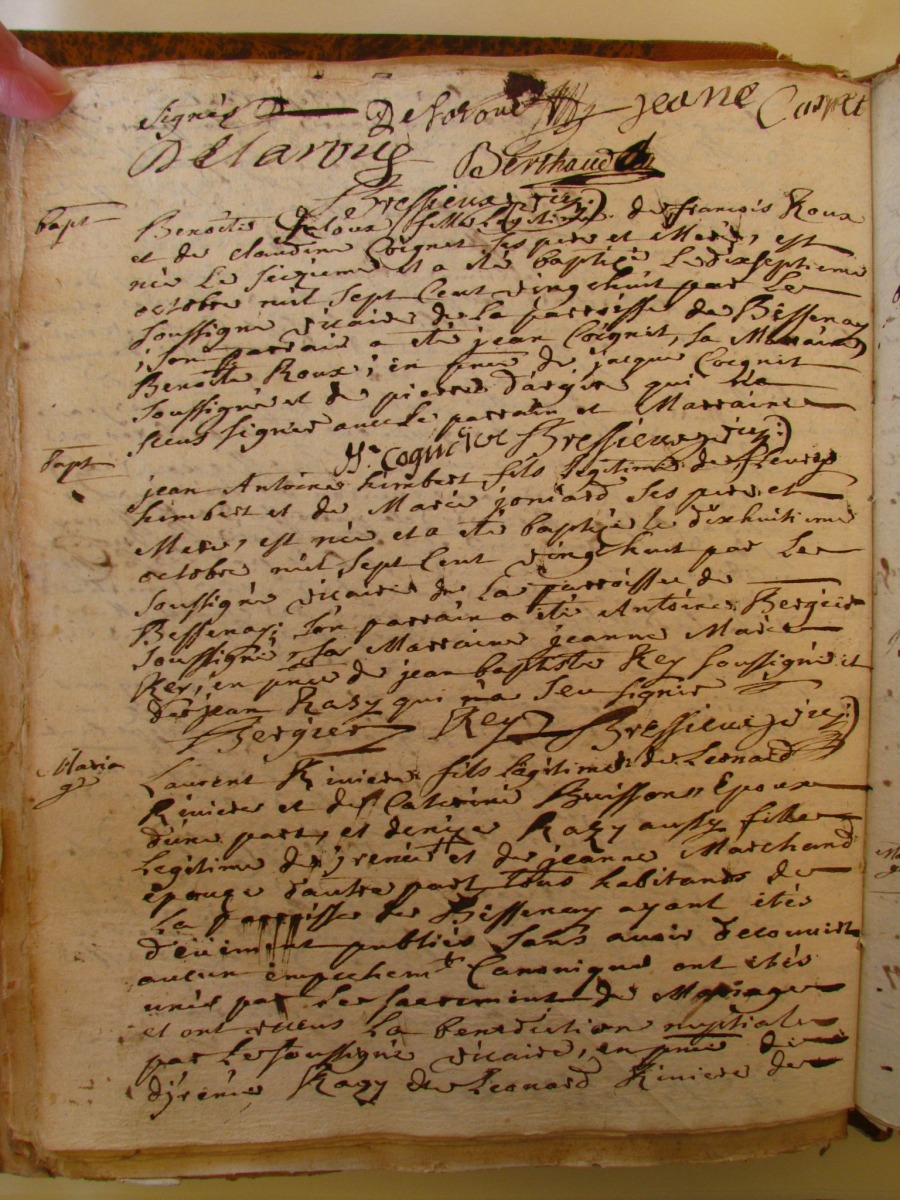 signer Delaroue jeane Carret
Delaroue Berthaud
Bressieux vic:
bapt
Benoîte Roux fille légitime de françois Roux
et de claudine Coignet ses pere et Mere, est
née Le seizieme et a été baptisée Le dixseptieme
octobre mil sept Cent vingthuit par Le
soussigné vicaire de La parroisse de Bessenay
; son parrain a été jean Coignet, sa Marraine
Benoîte Roux; en pnce de jacque Coignet
soussigné et de pierre qui n'a
sceu signer avec Le parrain et Marraine
Coignet Bressieux vic:
bapt
jean Antoine himbert fils légitime de fleury
himbert et de Marie joniard ses pere et
Mere, est née et a été baptisée le dixhuitieme
octobre mil sept Cent vingthuit par Le
soussigné vicaire de La parroisse de
Bessenay; son parrain a été Antoine Bergier
soussigné, sa Marraine jeanne Marie
Rey, en pnce de jean baptiste Rey soussigné et
de jean Razy qui n'a sceu signer
Bergier Rey Bressieux vic:
Maria
ge
Laurent Riviere fils Légitime de Leonard
Riviere et de Caterine Buisson Epoux
d'une part, et denize Razy aussy fille
Legitime d'jrenée et de jeanne Marchand
épouze d'autre part tous habitants de
La parroisse de Bessenay ayant étés
publiés sans avoir decouvert
aucun empechemt Canonique ont étés
unis par Le sacrement de Mariage
et ont receus La benediction nuptiale
par Le soussigné vicaire, en pnce
d'jrénée Razy de Leonard Riviere de